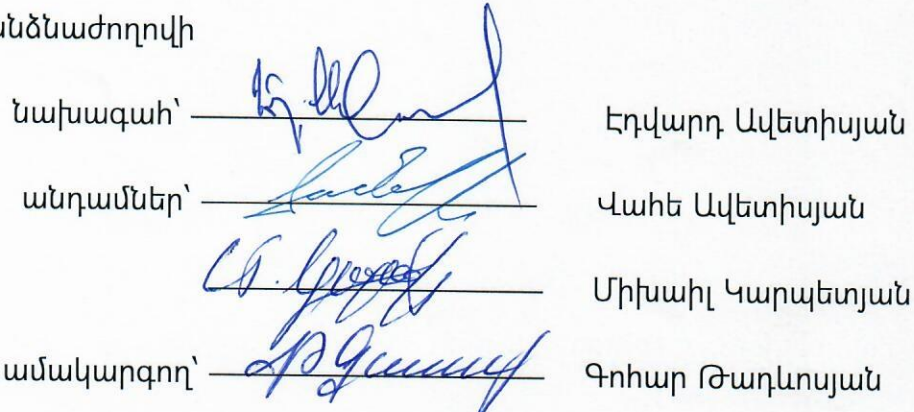 նձնաժողովի
նախագահ՝ Էդվարդ Ավետիսյան
անդամներ՝ Վահե Ավետիսյան
Միխաիլ Կարպետյան
ամակարգող՝ Գոհար Թադևոսյան